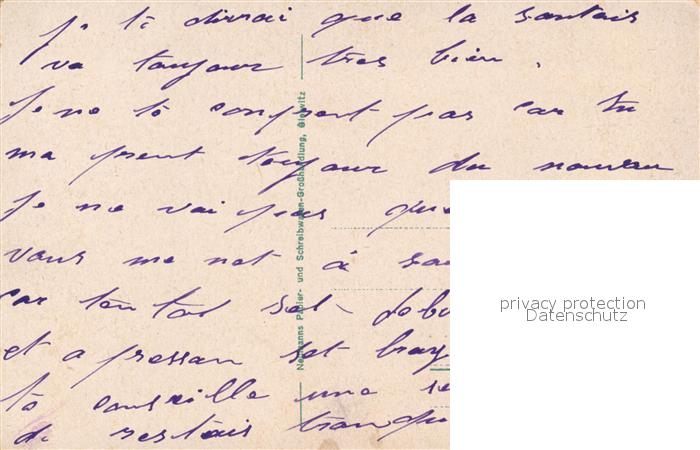 je te dirrai que la santais
va toujour tres bien.
Je ne te comprent pas car tu
ma prent toujour du nouveau
Je ne vai pas que
vous me net à
car tentot set
et a pressan set bray
te conseille une se
de restais tranqu
Neumanns Papier- und Schreibwaren-Großhandlung, Gleiwitz
privacy protection
Datenschutz